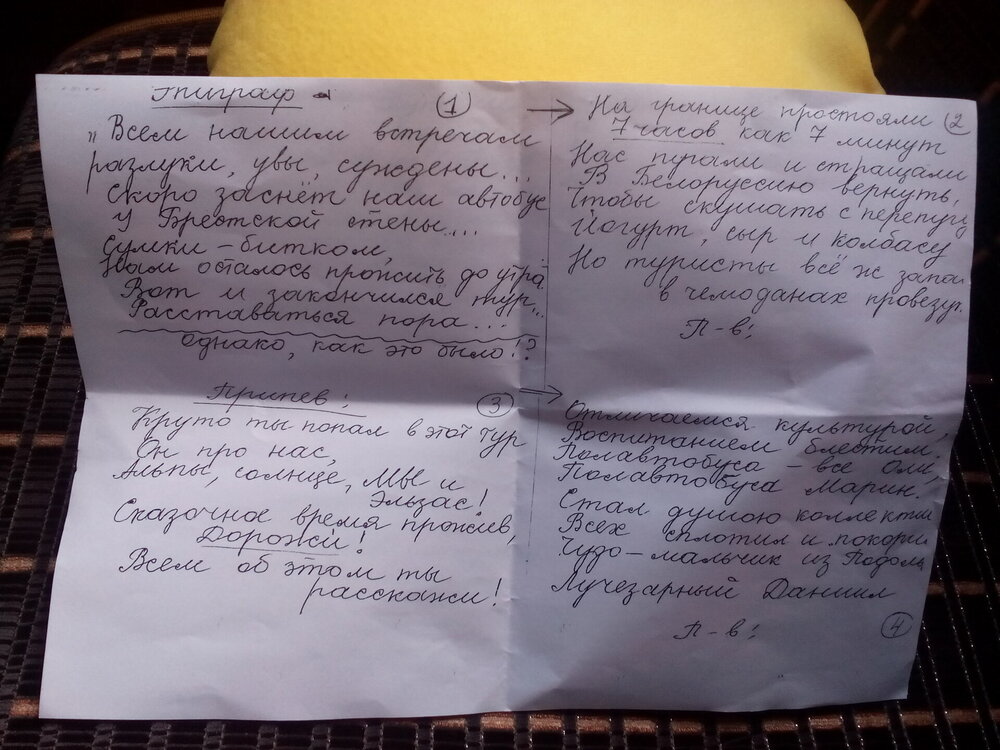 Эпиграф
①
„Всем нашим встречам
разлуки, увы, суждены...
Скоро заснёт наш автобус
У Брестской стены....
Сумки – битком,
Нам осталось прожить до утра.
Вот и закончился тур...
Расставаться пора...
однако, как это было!?
→ На границе простояли ②
7 часов как 7 минут
Нас пугали и стращали
В Белоруссию вернуть,
Чтобы скушать с перепугу
Йогурт, сыр и колбасу
Но туристы всё ж запа
в чемоданах провезут.
П-в:
Припев:
③
Круто ты попал в этот тур
Он про нас,
Альпы, солнце, Мы и
Эльзас!
Сказочное время прожив,
Дорожи!
Всем об этом ты
расскажи!
→
Отличаемся культурой,
Воспитанием блестим.
Полавтобуса – все Оли,
Полавтобуса Марин.
Стал душою коллекти
Всех сплотил и покори
Чудо-мальчик из Подоль
Лучезарный Даниил
П-в:
④